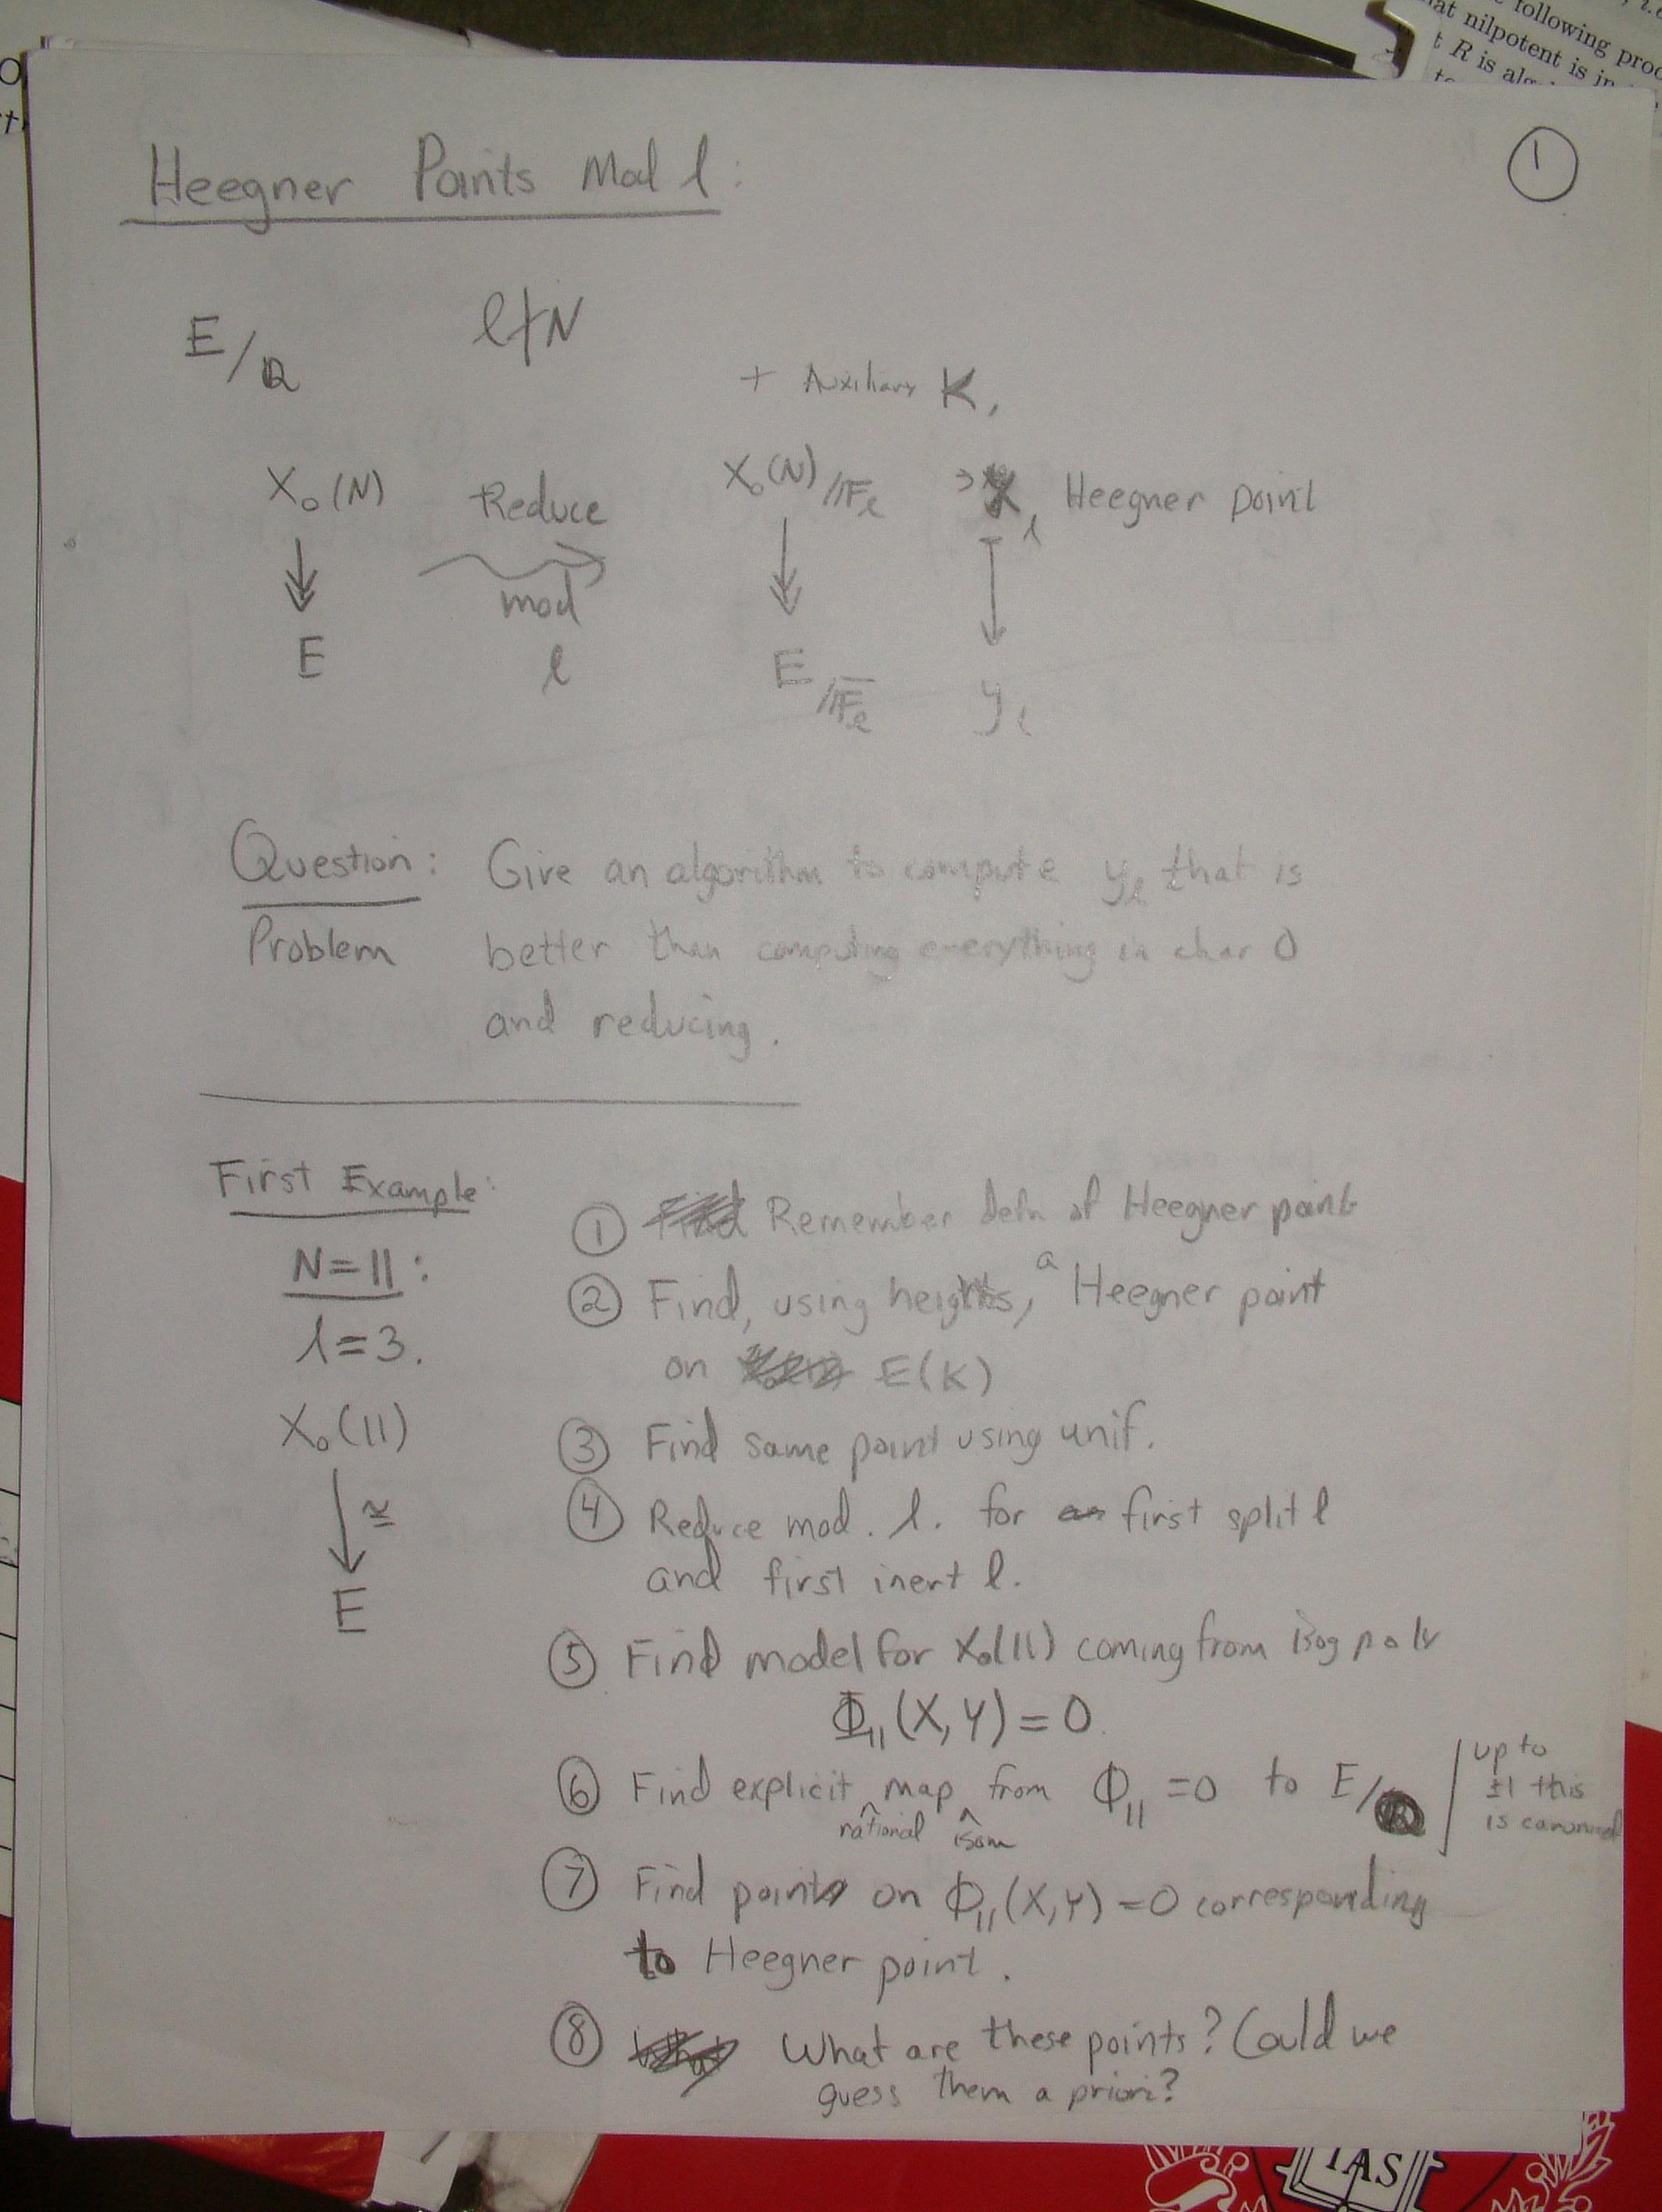 following proo
at nilpotent is in
t R is alg
Heegner Points Mod l:
1
E/Q l∤N
+ Auxiliary K,
X₀(N) Reduce X₀(N)/F̄ₗ ∋ Xₗ Heegner point
mod
E l E/F̄ₗ yₗ
Question: Give an algorithm to compute yₗ that is
Problem better than computing everything in char 0
and reducing.
First Example:
① Remember defn of Heegner point
N=11:
② Find, using heights, a Heegner point
l=3.
on E(K)
X₀(11)
③ Find same point using unif.
≅
④ Reduce mod. l. for first split l
and first inert l.
E
⑤ Find model for X₀(11) coming from isog poly
Φ₁₁(X,Y)=0.
⑥ Find explicit rational map isom from Φ₁₁=0 to E/Q
up to
±1 this
is canonical
⑦ Find point on Φ₁₁(X,Y)=0 corresponding
to Heegner point.
⑧ What are these points? Could we
guess them a priori?
IAS